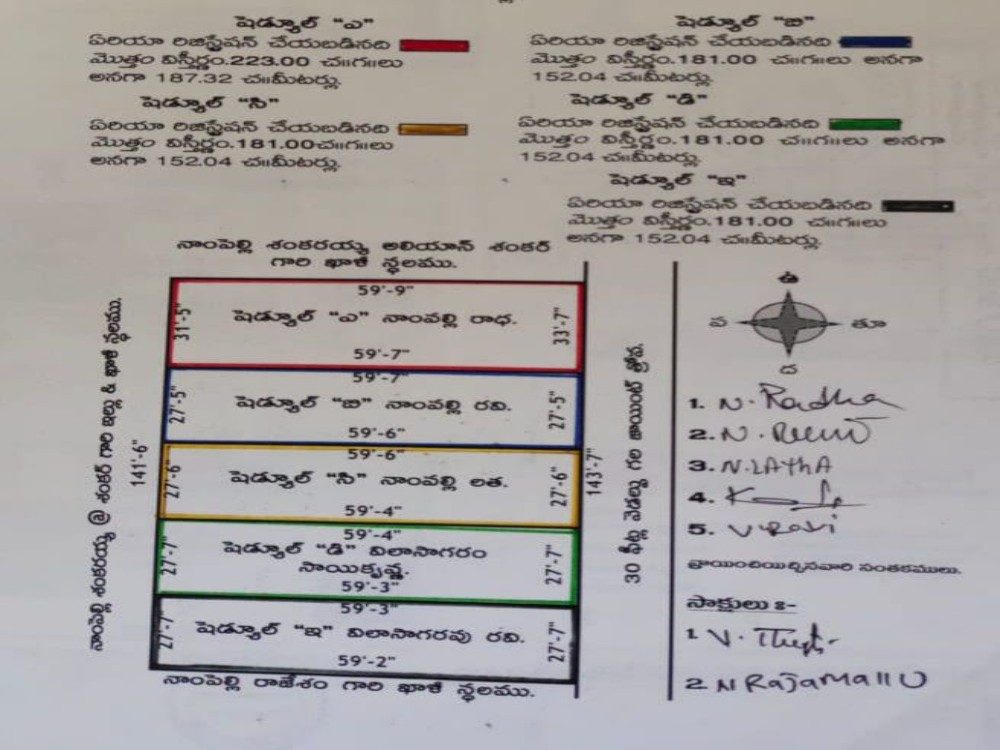 షెడ్యూల్ "ఎ"
ఏరియా రిజిస్ట్రేషన్ చేయబడినది
మొత్తం విస్తీర్ణం.223.00 చ॥గ॥లు
అనగా 187.32 చ॥మీటర్లు.
షెడ్యూల్ "బి"
ఏరియా రిజిస్ట్రేషన్ చేయబడినది
మొత్తం విస్తీర్ణం.181.00 చ॥గ॥లు అనగా
152.04 చ॥మీటర్లు.
షెడ్యూల్ "సి"
ఏరియా రిజిస్ట్రేషన్ చేయబడినది
మొత్తం విస్తీర్ణం.181.00చ॥గ॥లు
అనగా 152.04 చ॥మీటర్లు.
షెడ్యూల్ "డి"
ఏరియా రిజిస్ట్రేషన్ చేయబడినది
మొత్తం విస్తీర్ణం.181.00 చ॥గ॥లు అనగా
152.04 చ॥మీటర్లు.
షెడ్యూల్ "ఇ"
ఏరియా రిజిస్ట్రేషన్ చేయబడినది
మొత్తం విస్తీర్ణం.181.00 చ॥గ॥లు
అనగా 152.04 చ॥మీటర్లు.
నాంపెల్లి శంకరయ్య అలియాస్ శంకర్
గారి ఖాళీ స్థలము.
నాంపెల్లి శంకరయ్య @ శంకర్ గారి ఇల్లు & ఖాళీ స్థలము.
141'-6"
59'-9"
31'-5"
షెడ్యూల్ "ఎ" నాంపల్లి రాధ.
33'-7"
59'-7"
59'-7"
27'-5"
షెడ్యూల్ "బి" నాంపల్లి రవి.
27'-5"
59'-6"
59'-6"
27'-6"
షెడ్యూల్ "సి" నాంపల్లి లత.
27'-6"
59'-4"
59'-4"
27'-7"
షెడ్యూల్ "డి" విలాసాగరం
సాయికృష్ణ.
27'-7"
59'-3"
59'-3"
27'-7"
షెడ్యూల్ "ఇ" విలాసాగరపు రవి.
27'-7"
59'-2"
నాంపెల్లి రాజేశం గారి ఖాళీ స్థలము.
143'-7"
30 ఫీట్ల వెడల్పు గల జాయింట్ త్రోవ.
ఉ
ప తూ
ద
1. N. Radha
2. N.
3. N. LATHA
4.
5. V Ravi
వ్రాయించియిచ్చినవారి సంతకములు.
సాక్షులు ః-
1 V.
2 N RajaMallu